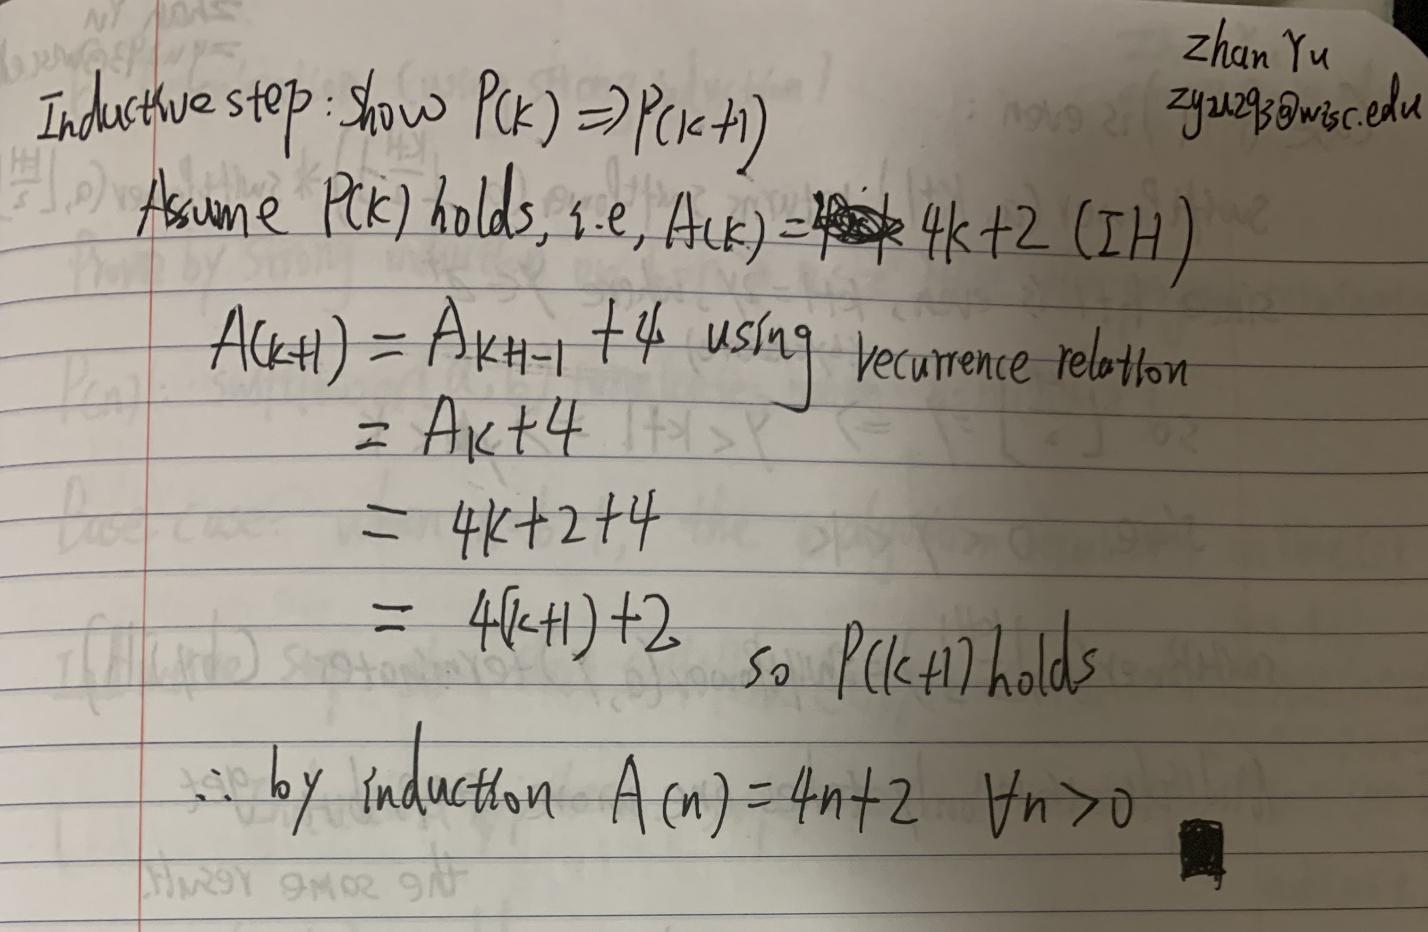 Zhan Yu
Inductive step: Show P(k) => P(k+1)
Assume P(k) holds, i.e, A(k) = 4k+2 (IH)
A(k+1) = Ak+1-1 + 4 using recurrence relation
= Ak+4
= 4k+2+4
= 4(k+1)+2
so P(k+1) holds
∴ by induction A(n) = 4n+2 ∀n>0
the same result.